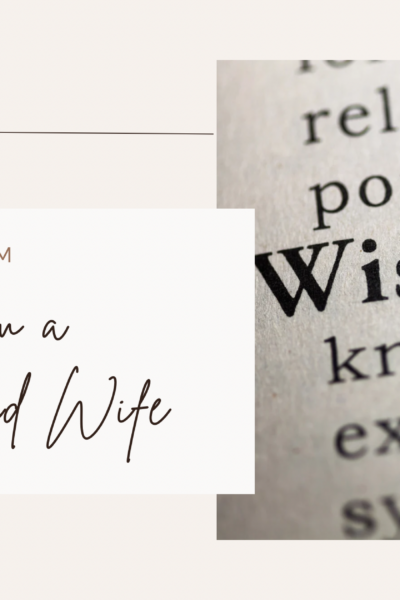 M
a
d Wife
rel
po
Wis
kn
ex
sy